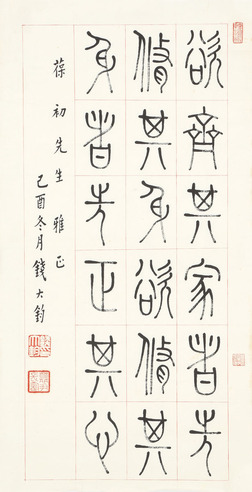 欲齊其家者先
脩其身欲脩其
身者先正其心
葆初先生雅正
己酉冬月錢大鈞